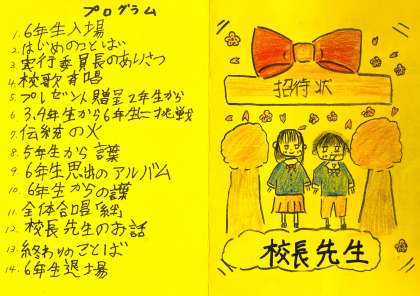 プログラム
1. 6年生入場
2. はじめのことば
3. 実行委員長のあいさつ
4. 校歌斉唱
5. プレゼント贈呈 2年生から
6. 3,4年生から6年生に挑戦
7. 伝統の火
8. 5年生から言葉
9. 6年生思出のアルバム
10. 6年生からの言葉
11. 全体合唱「絆」
12. 校長先生のお話
13. 終わりのことば
14. 6年生退場
招待状
校長先生